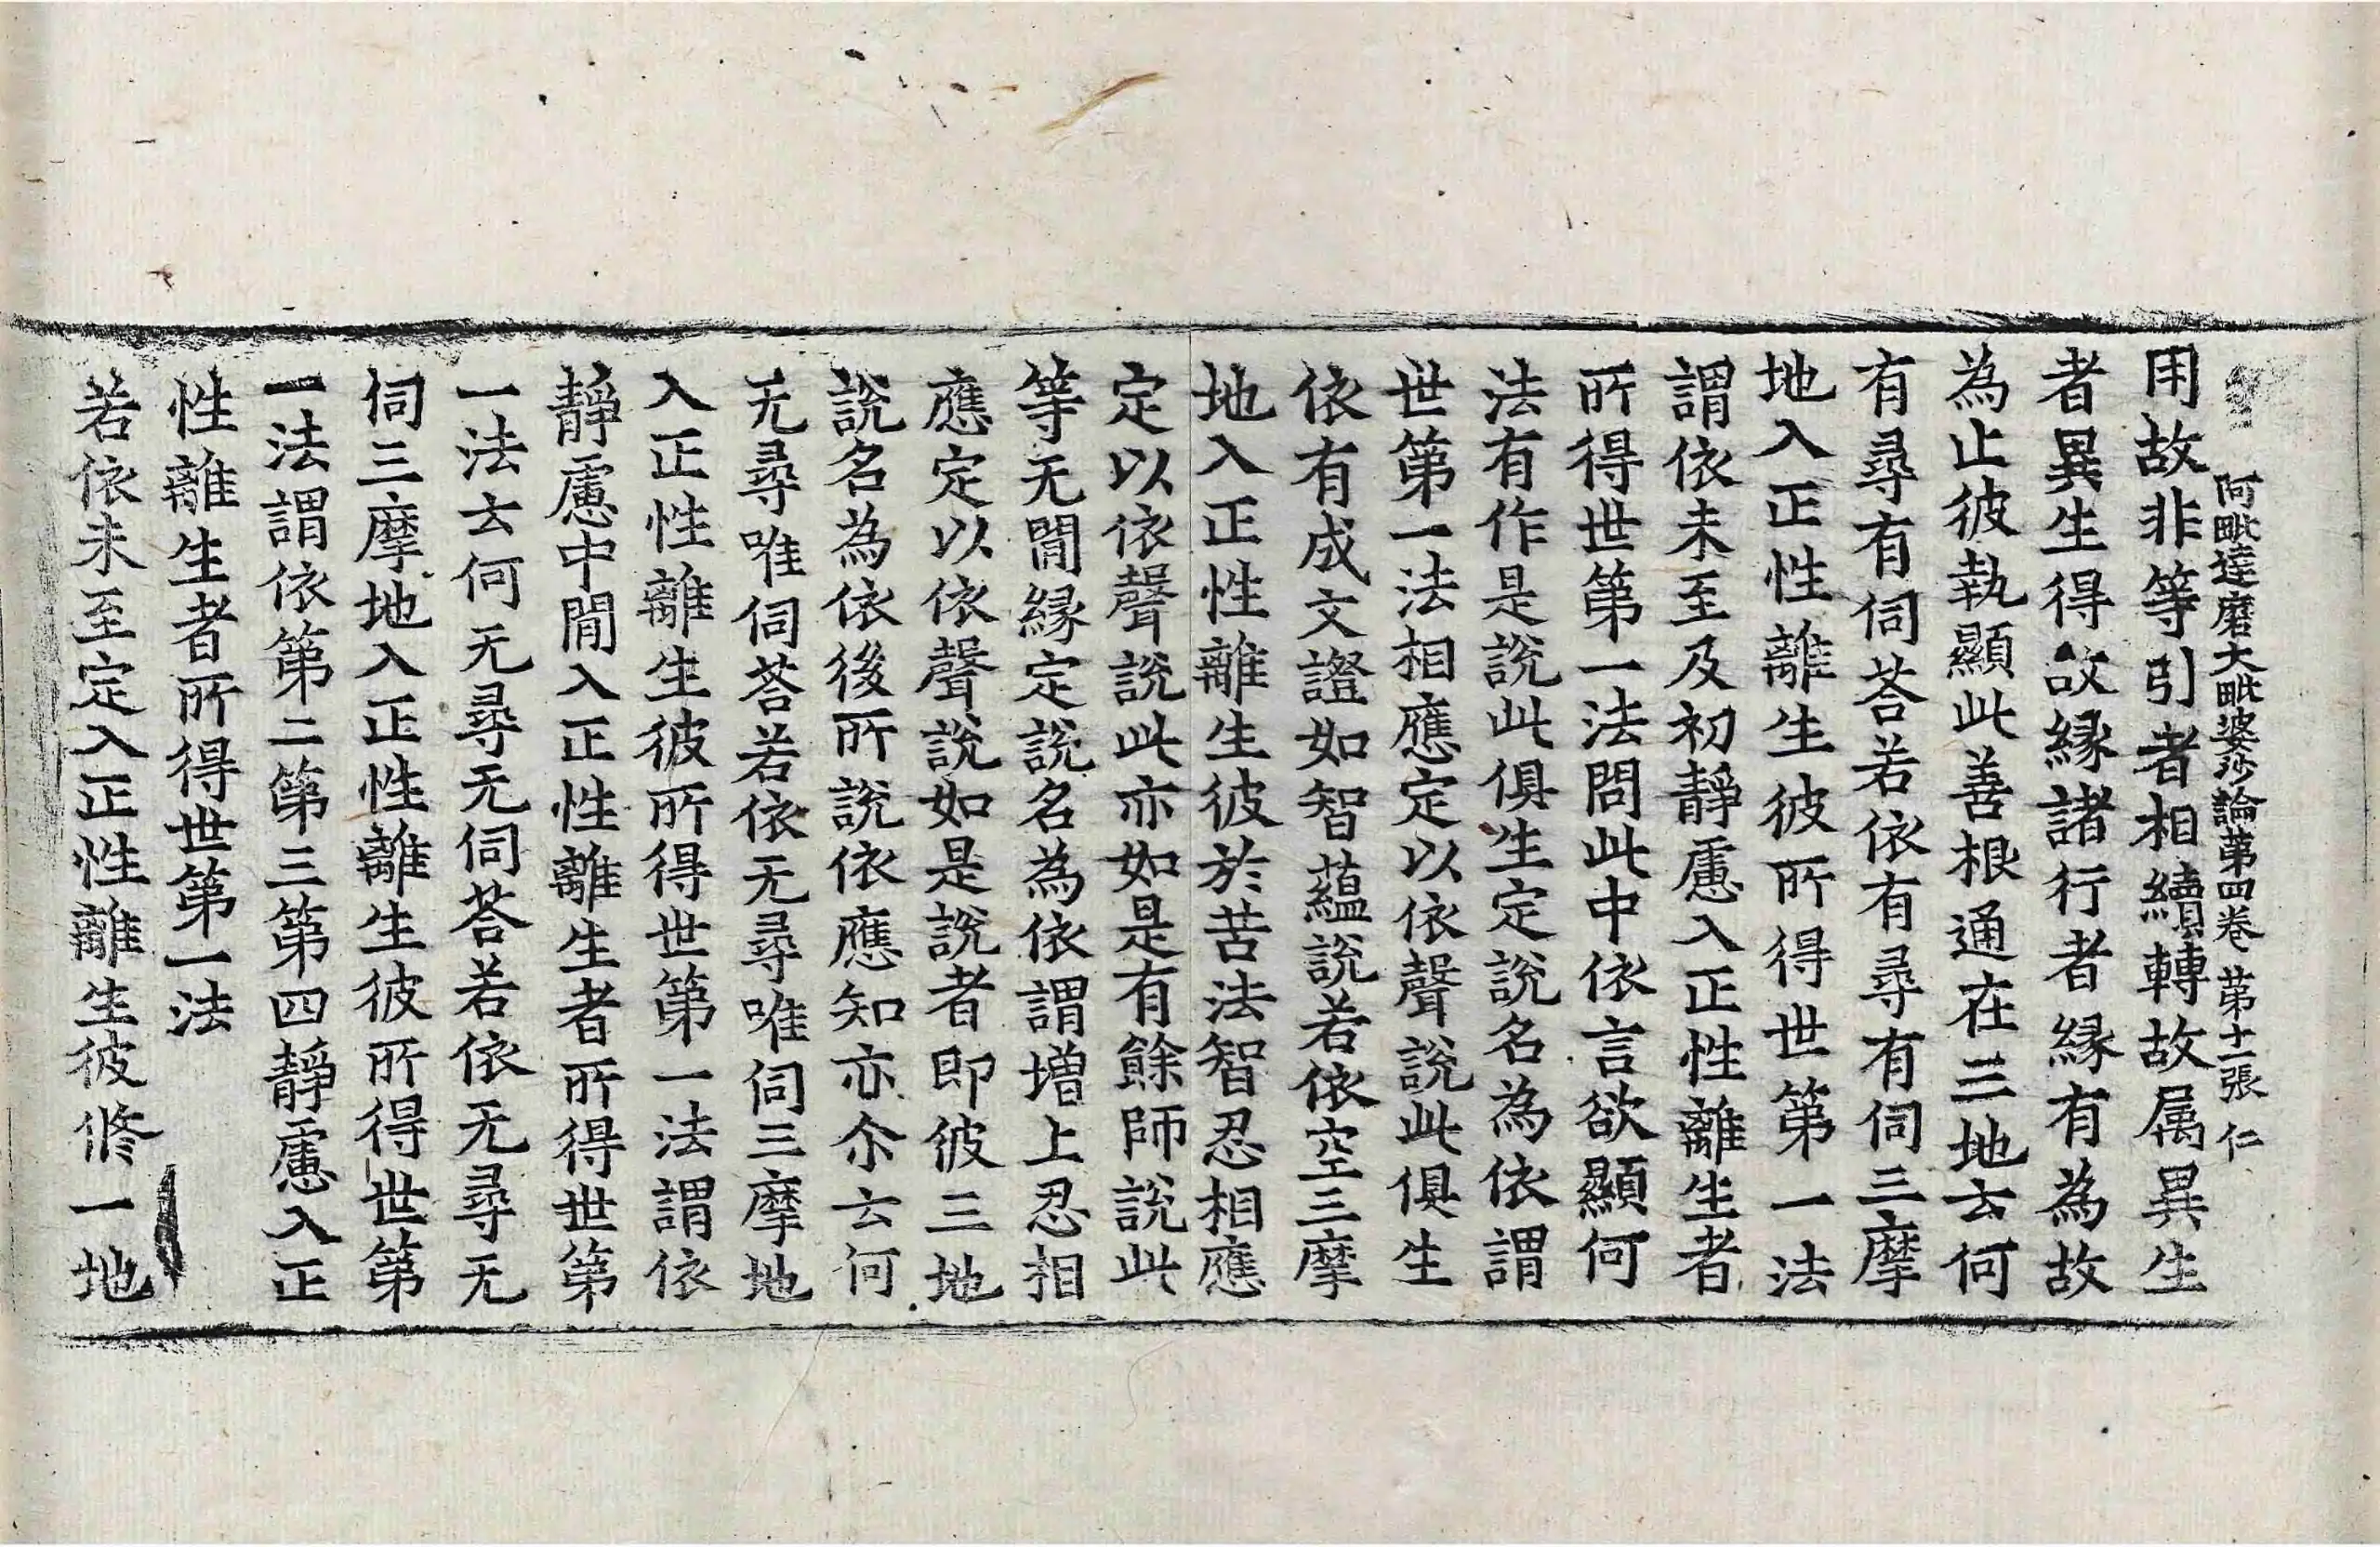 阿毗達磨大毗婆沙論第四卷 第十一張 仁
用故非等引者相續轉故属異生
者異生得故縁諸行者縁有為故
為止彼執顯此善根通在三地云何
有尋有伺荅若依有尋有伺三摩
地入正性離生彼所得世第一法
謂依未至及初靜慮入正性離生者
所得世第一法問此中依言欲顯何
法有作是說此俱生定說名為依謂
世第一法相應定以依聲說此俱生
依有成文證如智蘊說若依空三摩
地入正性離生彼於苦法智忍相應
定以依聲說此亦如是有餘師說此
等无間縁定說名為依謂增上忍相
應定以依聲說如是說者即彼三地
說名為依後所說依應知亦尒云何
无尋唯伺荅若依无尋唯伺三摩地
入正性離生彼所得世第一法謂依
靜慮中間入正性離生者所得世第
一法云何无尋无伺荅若依无尋无
伺三摩地入正性離生彼所得世第
一法謂依第二第三第四靜慮入正
性離生者所得世第一法
若依未至定入正性離生彼修一地